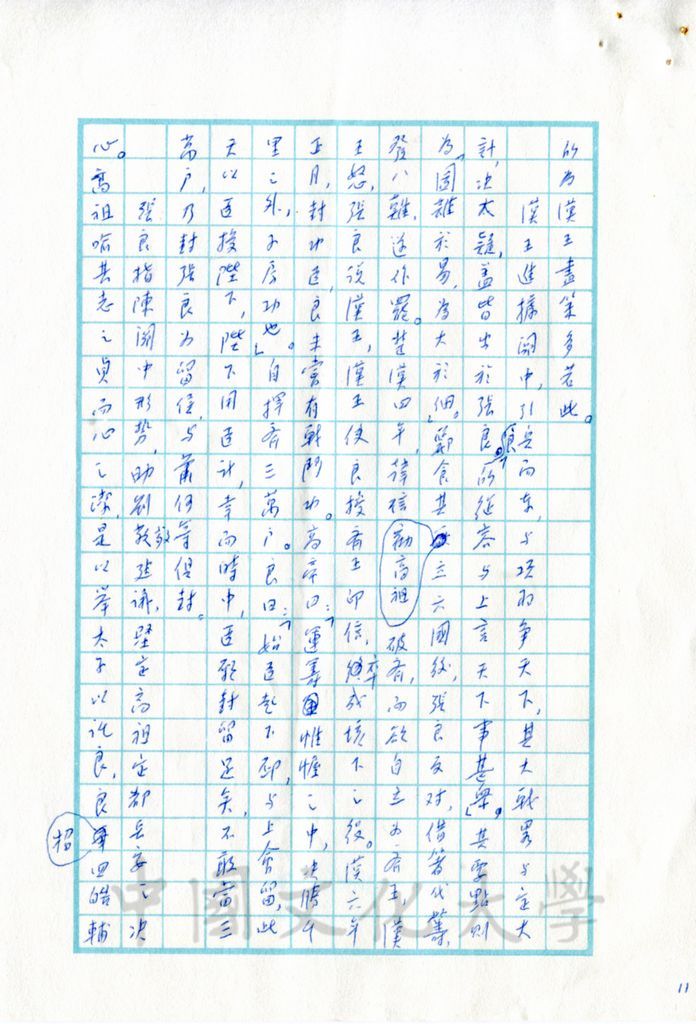 的為漢王盡策多若此。
漢王進據關中,引兵而東,与項羽争天下,其大戰略与定大
計,決大疑,蓋皆出於張良。「良所從容与上言天下事甚衆」,其要點則
為「圖難於易,為大於細。」酈食其立六國後,張良反对,借箸代籌,
發八難,遂作罷。楚漢四年,韓信破齊,而欲自立為齊王,漢
勸高祖
王怒,張良說漢王,漢王使良授齊王印信,卒成垓下之役。漢六年
正月,封功臣,良未嘗有戰鬥功。高帝曰:「運籌帷幄之中,決勝千
里之外,子房功也」。自擇齊三萬户。良曰:「始臣起下邳,与上會留,此
天以臣授陛下,陛下用臣計,幸而時中,臣願封留足矣,不敢當三
萬户,乃封張良為留侯,与蕭何等俱封。
張良指陳關中形勢,助劉敬建議,堅定高祖定都長安之決
心。高祖喻其志之貞而心之潔,是以舉太子以託良,良招四皓輔
中國文化大學
11